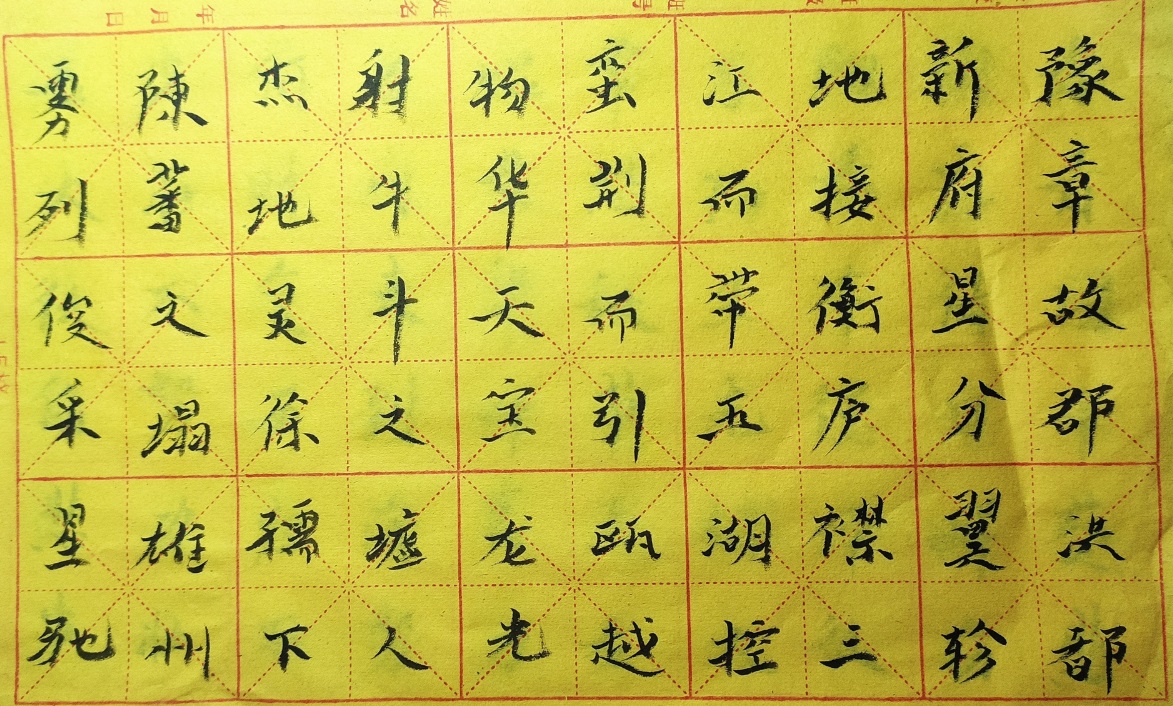 豫章故郡洪都
新府星分翼轸
地接衡庐襟三
江而带五湖控
蛮荆而引瓯越
物华天宝龙光
射牛斗之墟人
杰地灵徐孺下
陳蕃之塌雄州
雾列俊采星驰
姓名
年月日